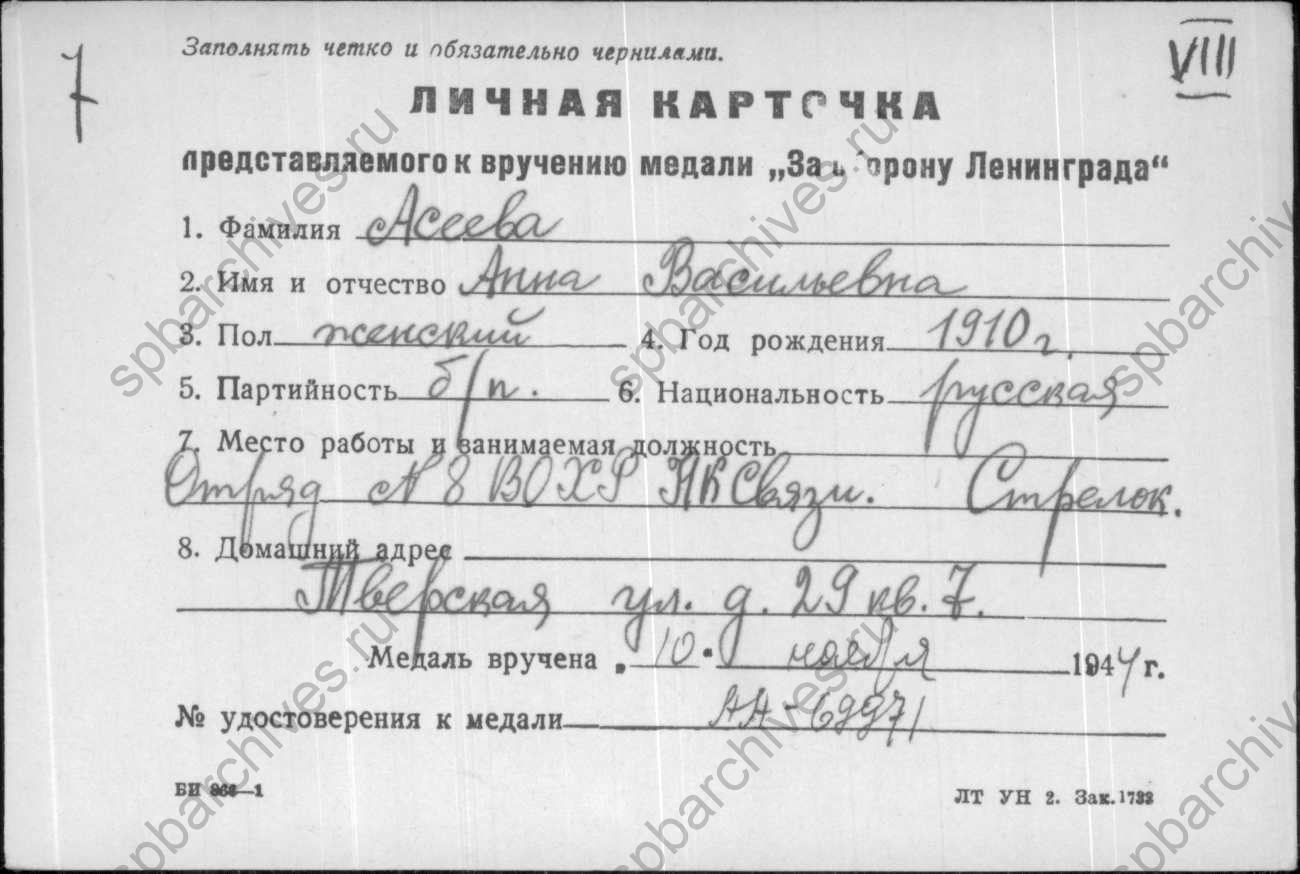 7
Заполнять четко и обязательно чернилами.
VIII
ЛИЧНАЯ КАРТОЧКА
представляемого к вручению медали „За оборону Ленинграда“
1. Фамилия Асеева
2. Имя и отчество Анна Васильевна
3. Пол женский 4. Год рождения 1910 г.
5. Партийность б/п. 6. Национальность русская
7. Место работы и занимаемая должность
Отряд N 8 ВОХР НКСвязи. Стрелок.
8. Домашний адрес
Тверская ул. д. 29 кв. 7.
Медаль вручена „10" ноября 1944 г.
№ удостоверения к медали АА-69971
БИ 866—1
ЛТ УН 2. Зак. 1733
spbarchives.ru
spbarchives.ru
spbarchives.ru
spbarchives.ru
spbarchives.ru
spbarchives.ru